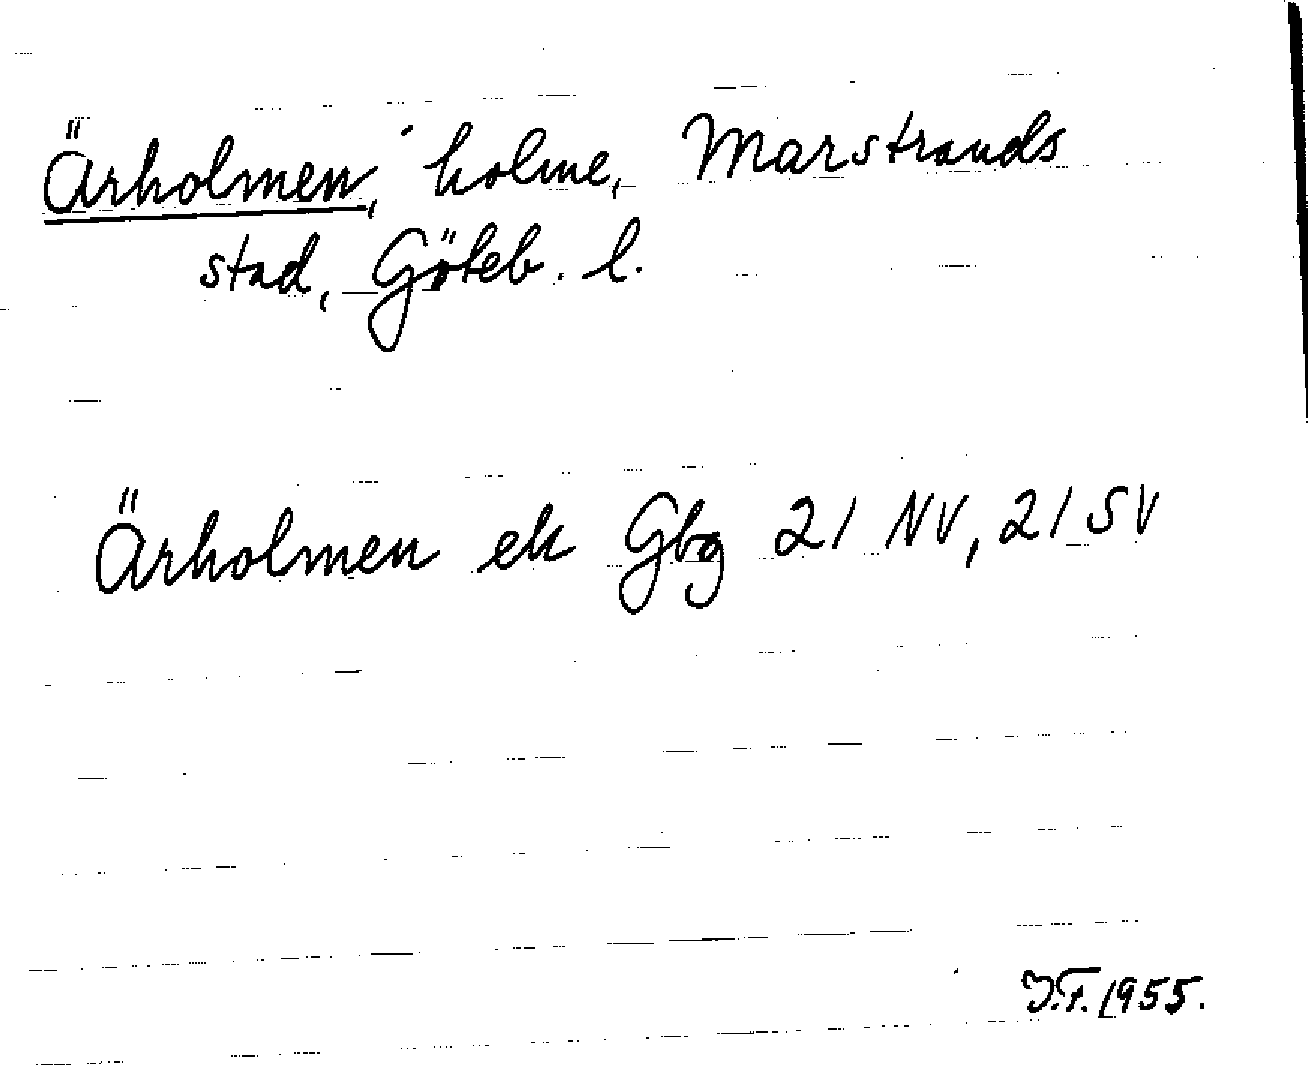 Ärholmen, holme, Marstrands
stad, Göteb. l.
Ärholmen ek Gbg 21 NV, 21 SV
J.F. 1955.